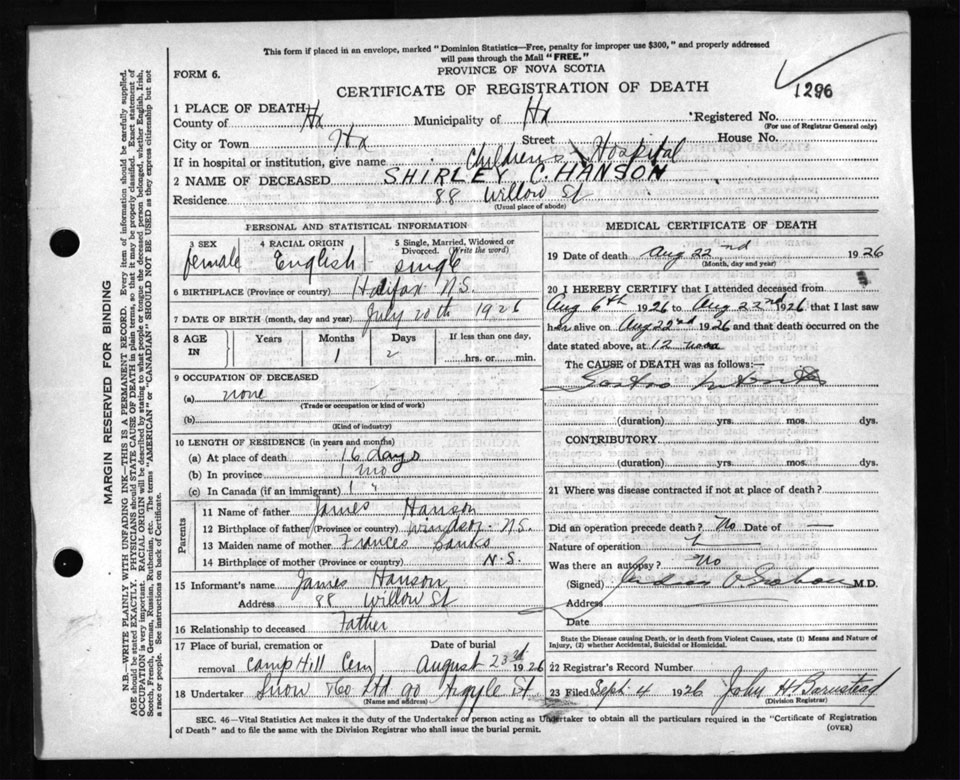 This form if placed in an envelope, marked "Dominion Statistics—Free, penalty for improper use $300," and properly addressed
will pass through the Mail "FREE."
PROVINCE OF NOVA SCOTIA
FORM 6.
CERTIFICATE OF REGISTRATION OF DEATH
1296
1 PLACE OF DEATH
County of Hx Municipality of Hx Registered No.
(For use of Registrar General only)
City or Town Hx Street House No.
If in hospital or institution, give name Childrens Hospital
2 NAME OF DECEASED SHIRLEY C. HANSON
Residence 88 Willow St
(Usual place of abode)
PERSONAL AND STATISTICAL INFORMATION
3 SEX 4 RACIAL ORIGIN 5 Single, Married, Widowed or Divorced. (Write the word)
female English single
6 BIRTHPLACE (Province or country) Halifax N.S.
7 DATE OF BIRTH (month, day and year) July 20th 1926
8 AGE IN Years Months Days If less than one day,
1 2 hrs. or min.
9 OCCUPATION OF DECEASED
(a) none
(Trade or occupation or kind of work)
(b)
(Kind of industry)
10 LENGTH OF RESIDENCE (in years and months)
(a) At place of death 16 days
(b) In province 1 mo
(c) In Canada (if an immigrant) 1 "
Parents
11 Name of father James Hanson
12 Birthplace of father (Province or country) Windsor N.S.
13 Maiden name of mother Frances Banks
14 Birthplace of mother (Province or country) N.S.
15 Informant's name James Hanson
Address 88 Willow St
16 Relationship to deceased Father
17 Place of burial, cremation or removal Date of burial
Camp Hill Cem August 23rd 1926
18 Undertaker Snow & Co Ltd 90 Argyle St.
(Name and address)
MEDICAL CERTIFICATE OF DEATH
19 Date of death Aug 22nd 1926
(Month, day and year)
20 I HEREBY CERTIFY that I attended deceased from
Aug 6th 1926 to Aug 22nd 1926 that I last saw
her alive on Aug 22nd 1926 and that death occurred on
the date stated above, at 12 noon
The CAUSE of DEATH was as follows:—
Gastro
(duration) yrs. mos. dys.
CONTRIBUTORY
(duration) yrs. mos. dys.
21 Where was disease contracted if not at place of death?
Did an operation precede death? No Date of —
Nature of operation
Was there an autopsy? No
(Signed) M.D.
Address
Date
State the Disease causing Death, or in death from Violent Causes, state (1) Means and Nature of
Injury, (2) whether Accidental, Suicidal or Homicidal.
22 Registrar's Record Number
23 Filed Sept. 4 1926 John H. Barnstead
(Division Registrar)
SEC. 46—Vital Statistics Act makes it the duty of the Undertaker or person acting as Undertaker to obtain all the particulars required in the "Certificate of Registration
of Death" and to file the same with the Division Registrar who shall issue the burial permit.
(OVER)
MARGIN RESERVED FOR BINDING
N.B.—WRITE PLAINLY WITH UNFADING INK—THIS IS A PERMANENT RECORD. Every item of information should be carefully supplied.
AGE should be stated EXACTLY. PHYSICIANS should STATE CAUSE OF DEATH in plain terms, so that it may be properly classified. Exact statement of
OCCUPATION is very important. RACIAL ORIGIN will be described by stating to what people or tongue the deceased person belonged, whether English, Irish,
Scotch, French, German, Russian, Ruthenian, etc. The terms "AMERICAN" or "CANADIAN" SHOULD NOT BE USED as they express citizenship but not
a race or people. See instructions on back of Certificate.